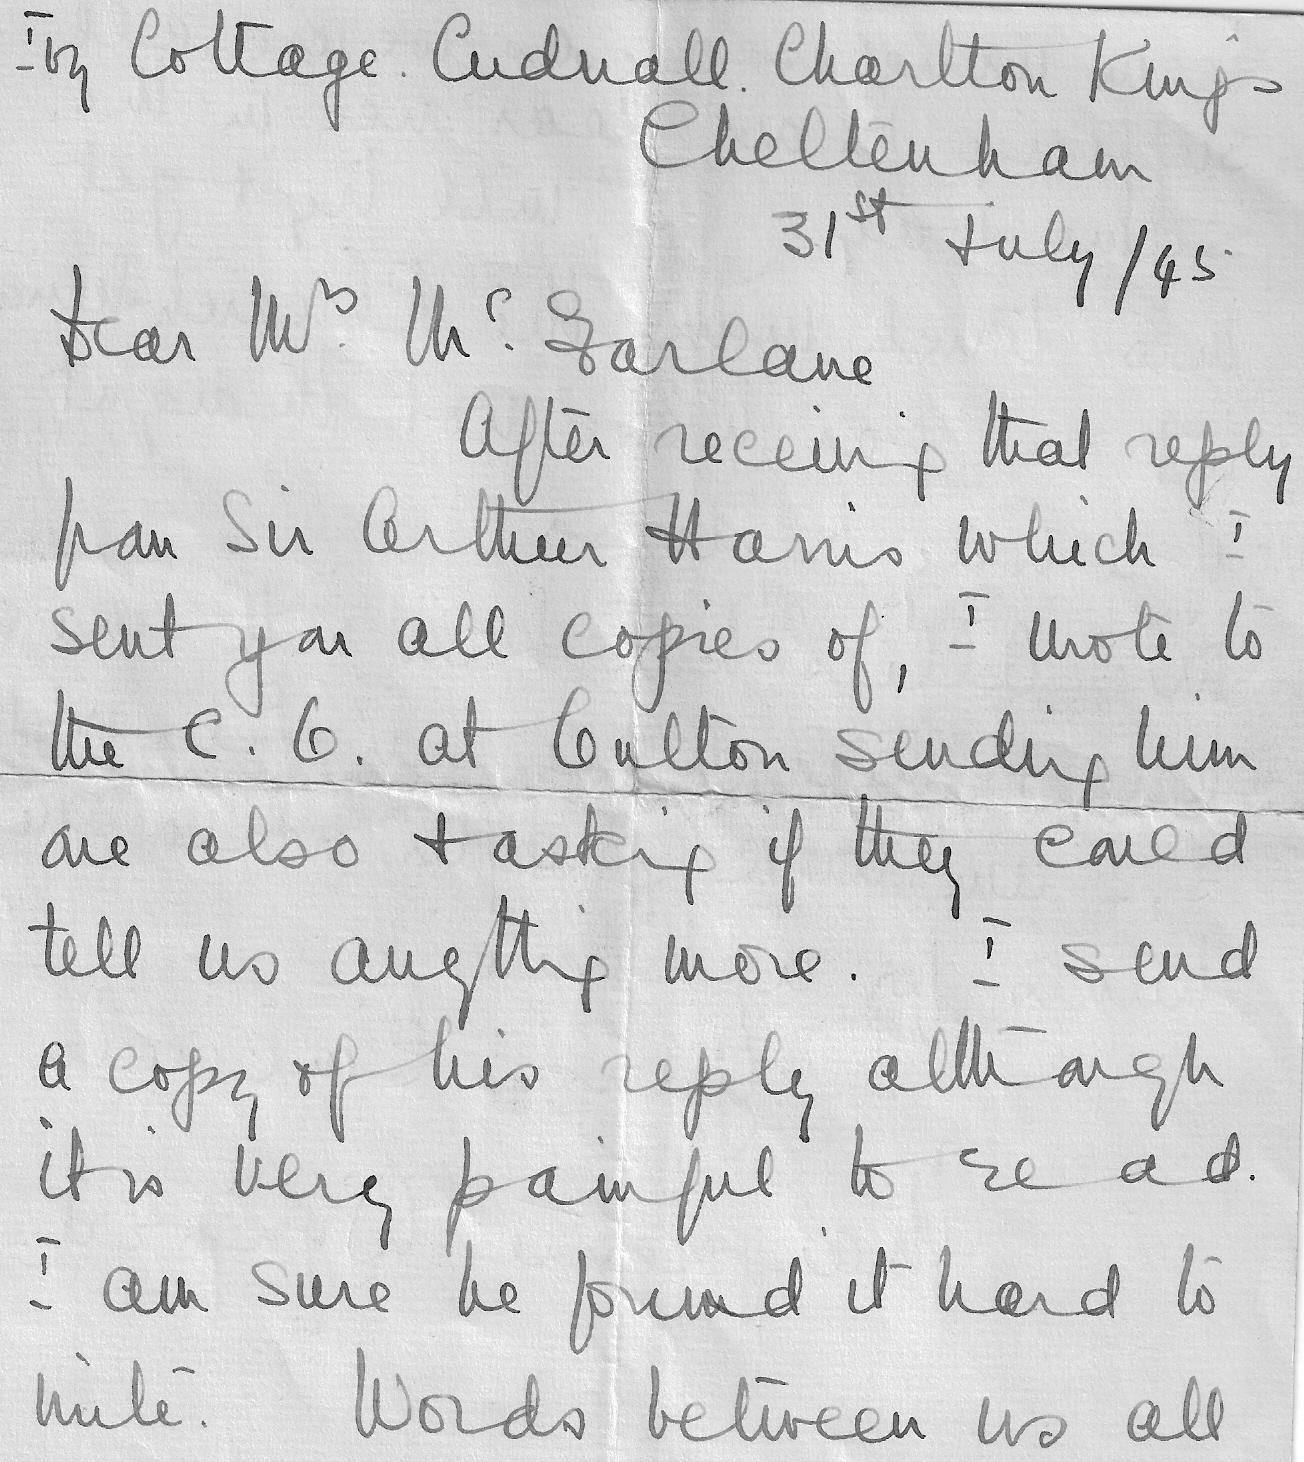 Ivy Cottage. Cudnall. Charlton Kings
Cheltenham
31st July/45
Dear Mrs. Mc. Farlane
After receiving that reply
from Sir Arthur Harris which I
sent you all copies of, I wrote to
the C. O. at Coulton sending him
one also + asking if they could
tell us anything more. I send
a copy of his reply although
it is very painful to read.
I am sure he found it hard to
write. Words between us all